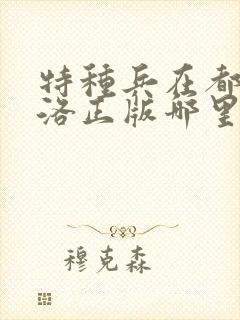 特種兵在都
洛正版哪里
穆克森